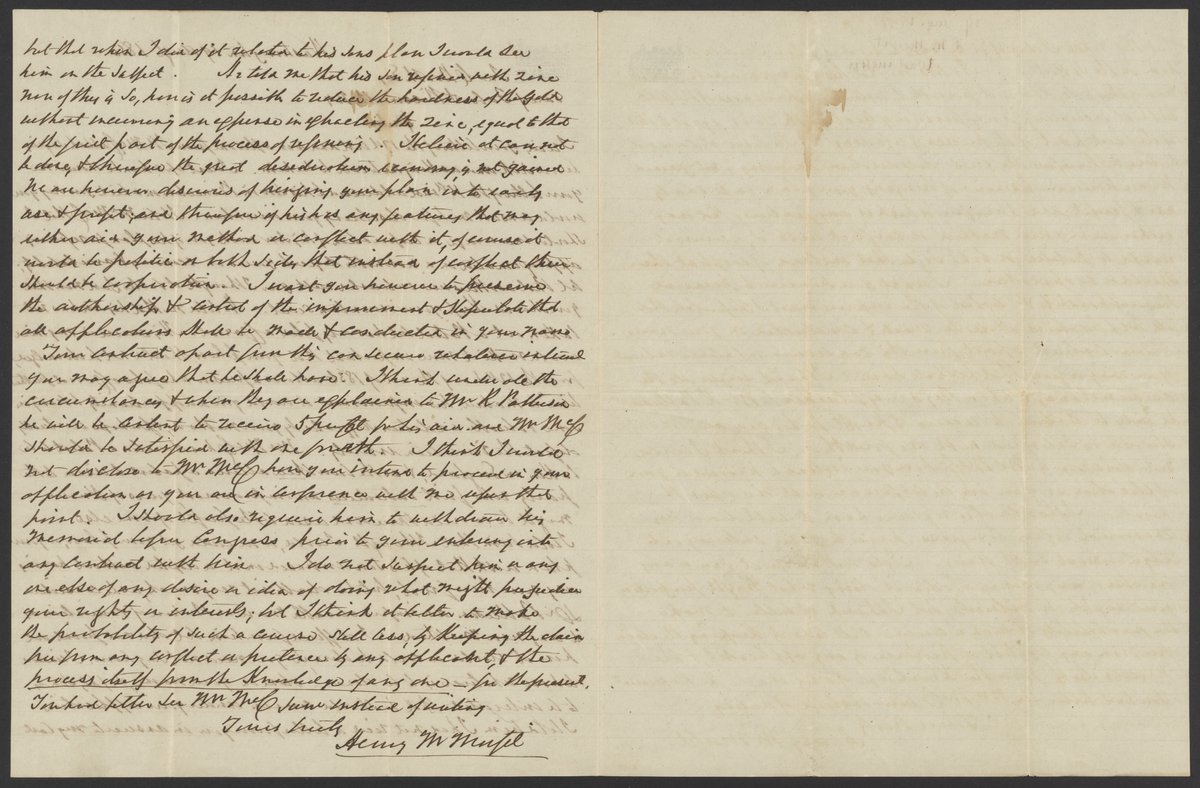 but that when I did if it related to his sons plan I would see
him on the subject. He told me that his son refined with zinc
now if this is so, how is it possible to reduce the hardness of the Gold
without incurring an expense in extracting the zinc, equal to that
of the first part of the process of refining I believe it can not
be done, & therefore the great desideratum economy, is not gained
We are however desirous of bringing your plan into early
use & profit, and therefore if his has any features that may
either aid your method or conflict with it, of course it
would be politic on both sides that instead of conflict there
should be cooperation. I want you however to preserve
the authorship & control of the improvement & stipulate that
all applications shall be made & conducted in your name
Your contract apart from this can secure whatever interest
you may agree that he shall have I think under all the
circumstances & when they are explained to Mr R Patterson
he will be content to receive 5 pr ct for his aid and Mr McC
should be satisfied with one fourth. I think I would
not disclose to Mr McC how you intend to proceed in your
application or you are in conference with me upon that
point I should also require him to withdraw his
memorial before Congress prior to your entering into
any contract with him I do not suspect him or any
one else of any desire or idea of doing what might prejudice
your rights or interests, but I think it better to make
the probability of such a course still less, by keeping the claim
free from any conflict or pretence by any applicant, & the
process itself from the Knowledge of any one – for the present.
You had better see Mr McC soon instead of writing
Yours truly
Henry M